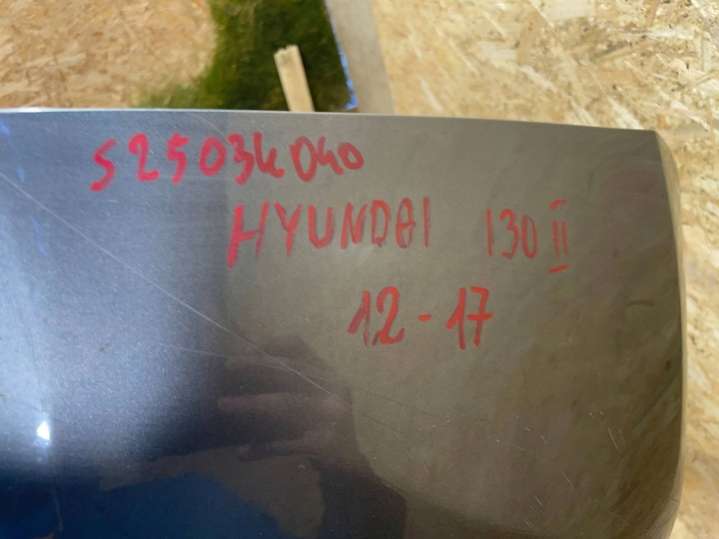 S25034040
HYUNDAI I30 II
12-17